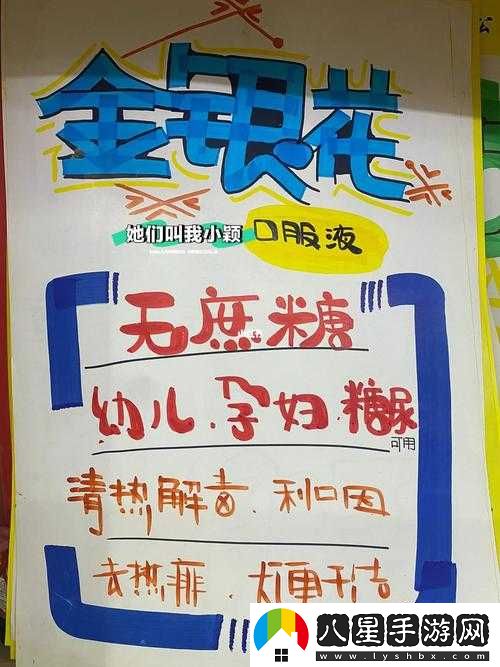 金银花
她们叫我小颖
口服液
无庶糖
幼儿.孕妇.糖尿
可用
清热解音.利口因
去热痱.大便干洁
八星手游网
www.lyshbx.com